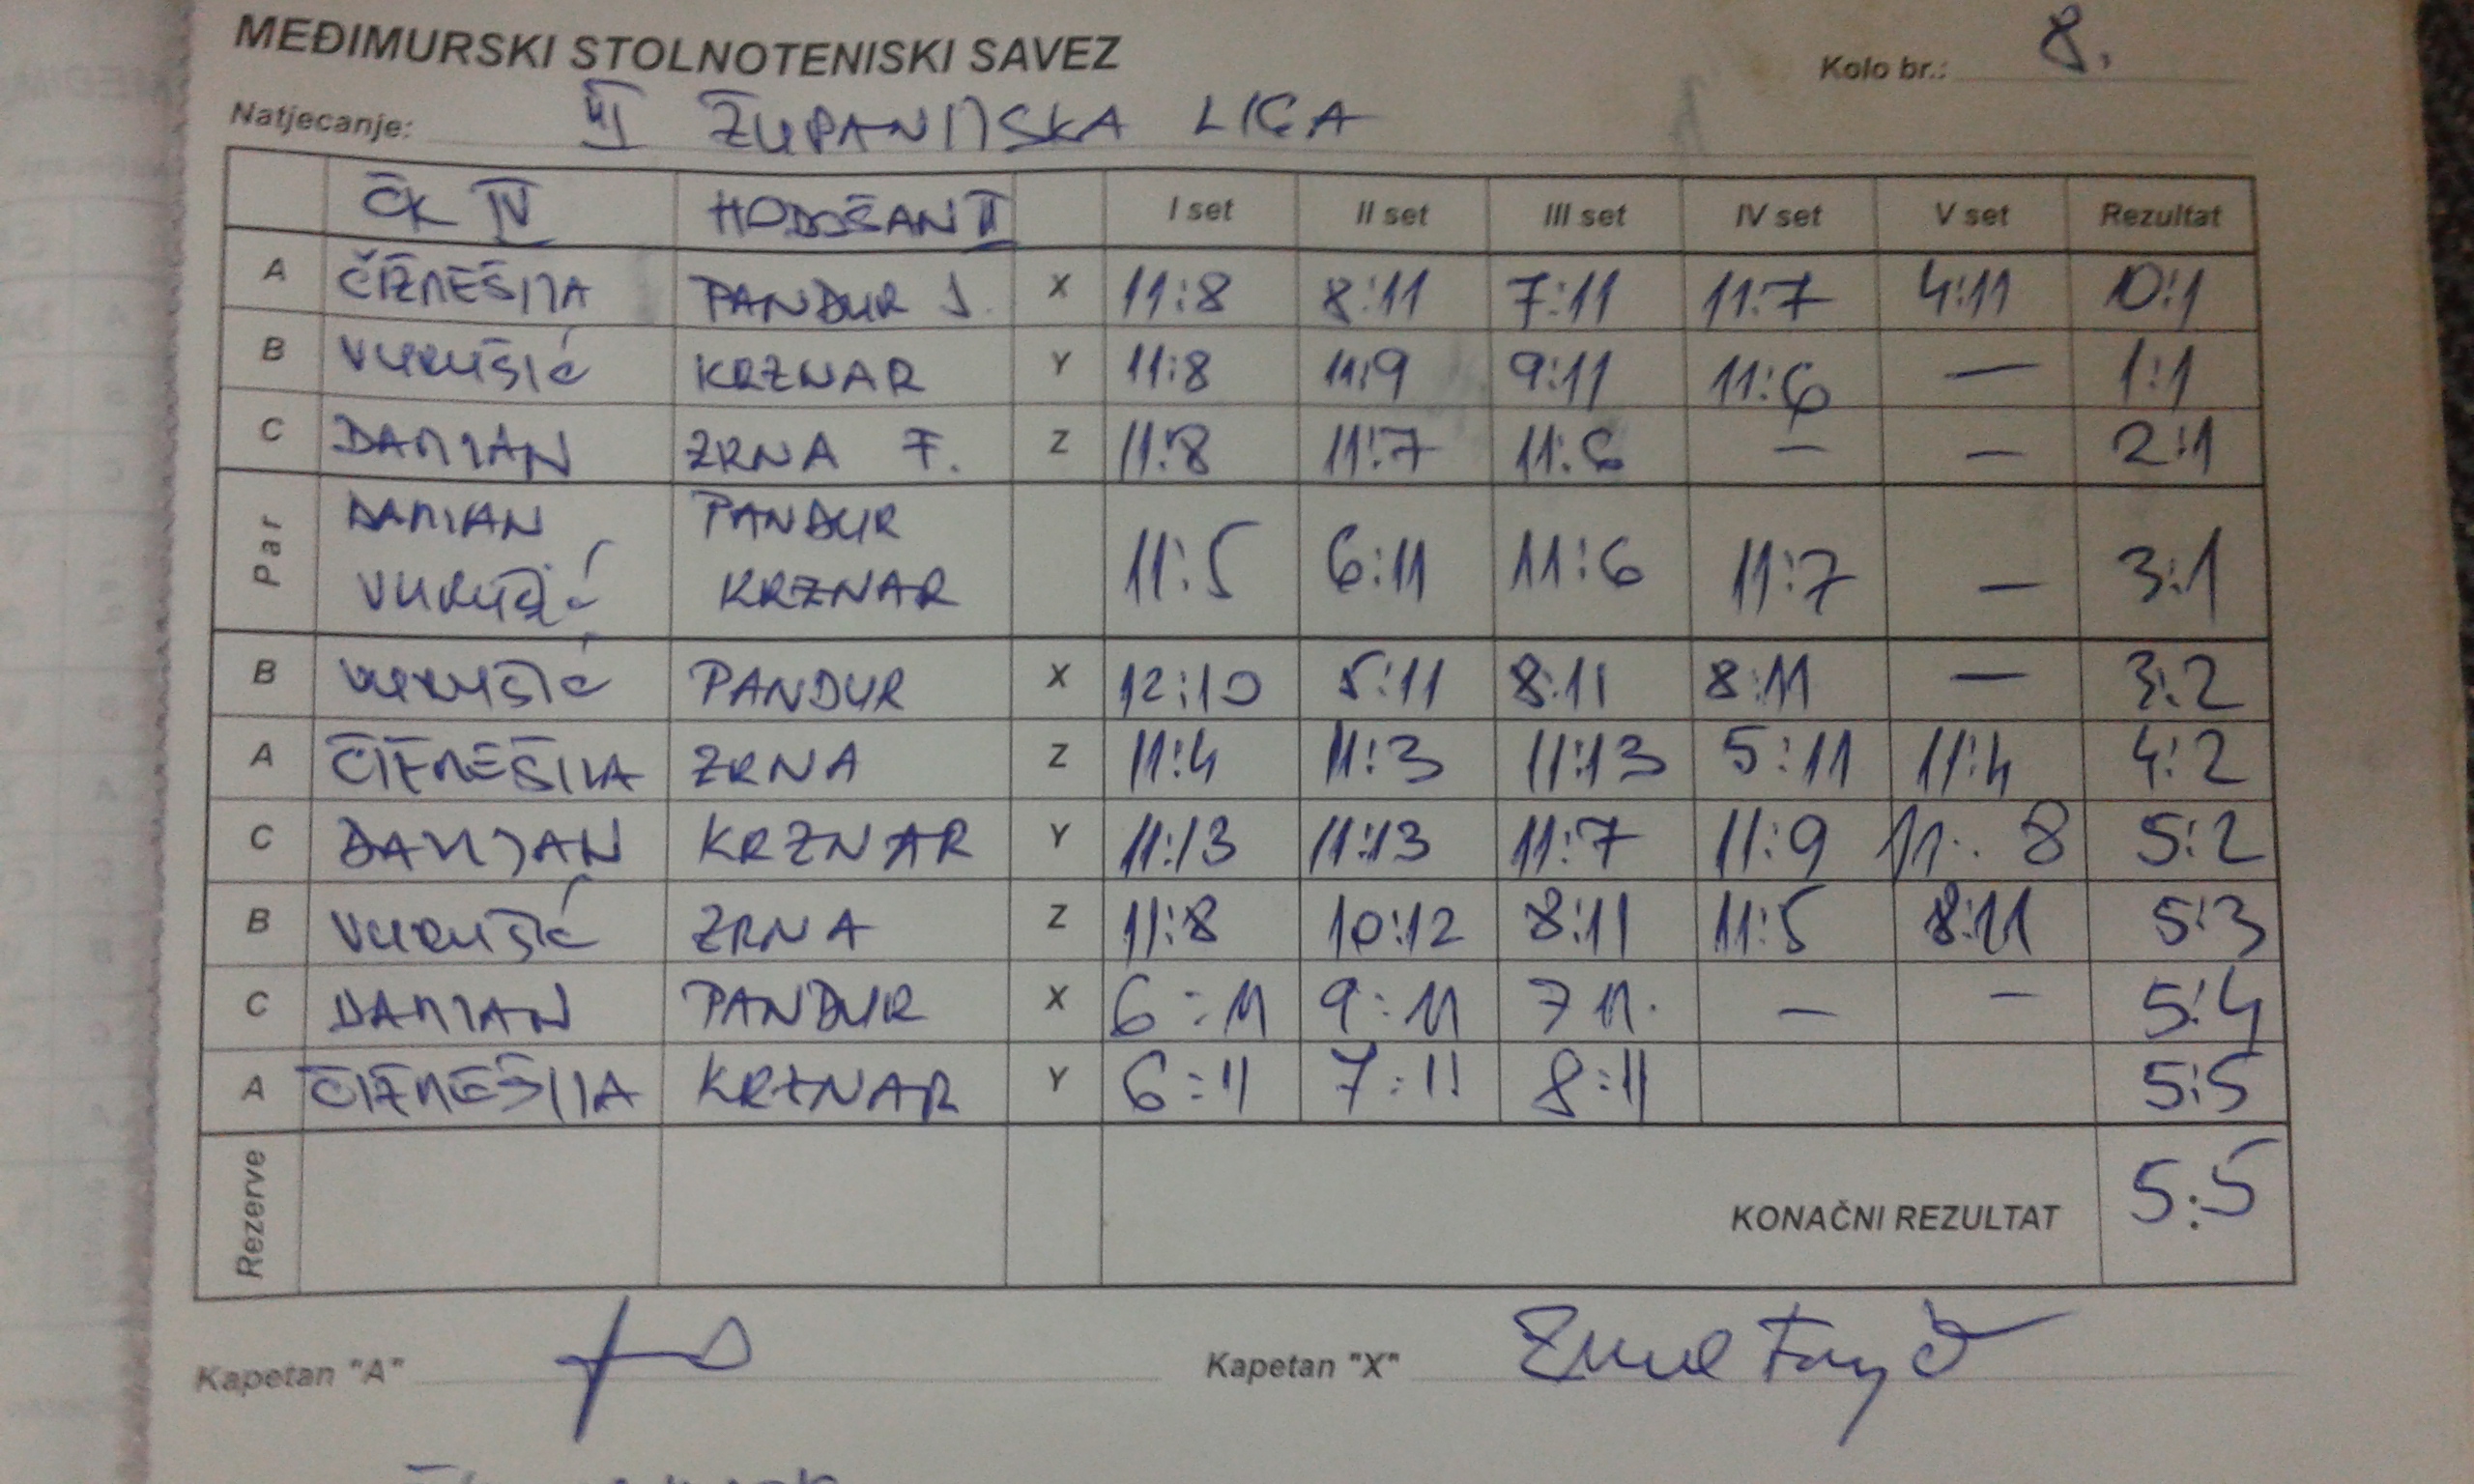 MEĐIMURSKI STOLNOTENISKI SAVEZ
Kolo br.: 8.
Natjecanje: III ŽUPANIJSKA LIGA
ČK IV HODOŠAN II I set II set III set IV set V set Rezultat
A ČIŽMEŠIJA PANDUR J. X 11:8 8:11 7:11 11:7 4:11 0:1
B VURUŠIĆ KRZNAR Y 11:8 11:9 9:11 11:6 — 1:1
C DAMJAN ZRNA F. Z 11:8 11:7 11:6 — — 2:1
Par DAMJAN PANDUR 11:5 6:11 11:6 11:7 — 3:1
VURUŠIĆ KRZNAR
B VURUŠIĆ PANDUR X 12:10 5:11 8:11 8:11 — 3:2
A ČIŽMEŠIJA ZRNA Z 11:4 11:3 11:13 5:11 11:4 4:2
C DAMJAN KRZNAR Y 11:13 11:13 11:7 11:9 11:8 5:2
B VURUŠIĆ ZRNA Z 11:8 10:12 8:11 11:5 8:11 5:3
C DAMJAN PANDUR X 6:11 9:11 7 11. — — 5:4
A ČIŽMEŠIJA KRZNAR Y 6:11 7:11 8:11 5:5
Rezerve KONAČNI REZULTAT 5:5
Kapetan "A" Kapetan "X"